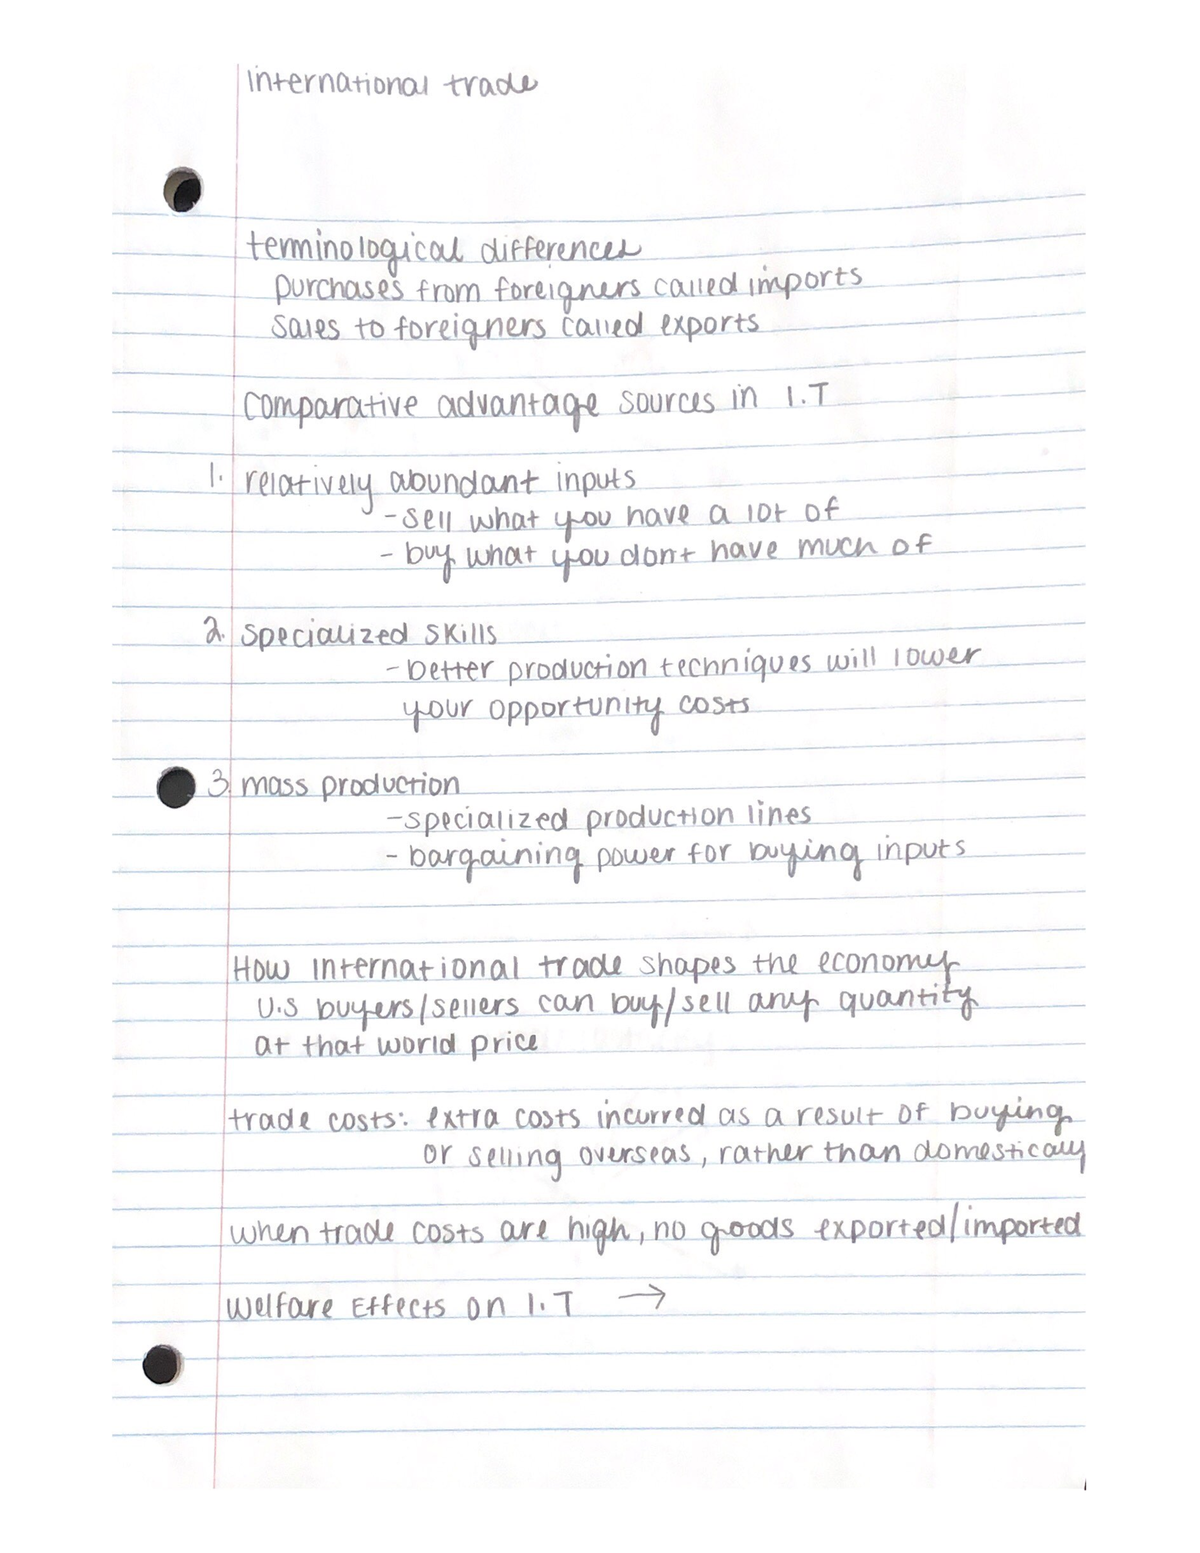 international trade
terminological differences
purchases from foreigners called imports
sales to foreigners called exports
comparative advantage sources in I.T
1. relatively abundant inputs
- sell what you have a lot of
- buy what you dont have much of
2. specialized skills
- better production techniques will lower
your opportunity costs
3. mass production
- specialized production lines
- bargaining power for buying inputs
How international trade shapes the economy
U.S buyers/sellers can buy/sell any quantity
at that world price
trade costs: extra costs incurred as a result of buying
or selling overseas, rather than domestically
when trade costs are high, no goods exported/imported
Welfare Effects on I.T →